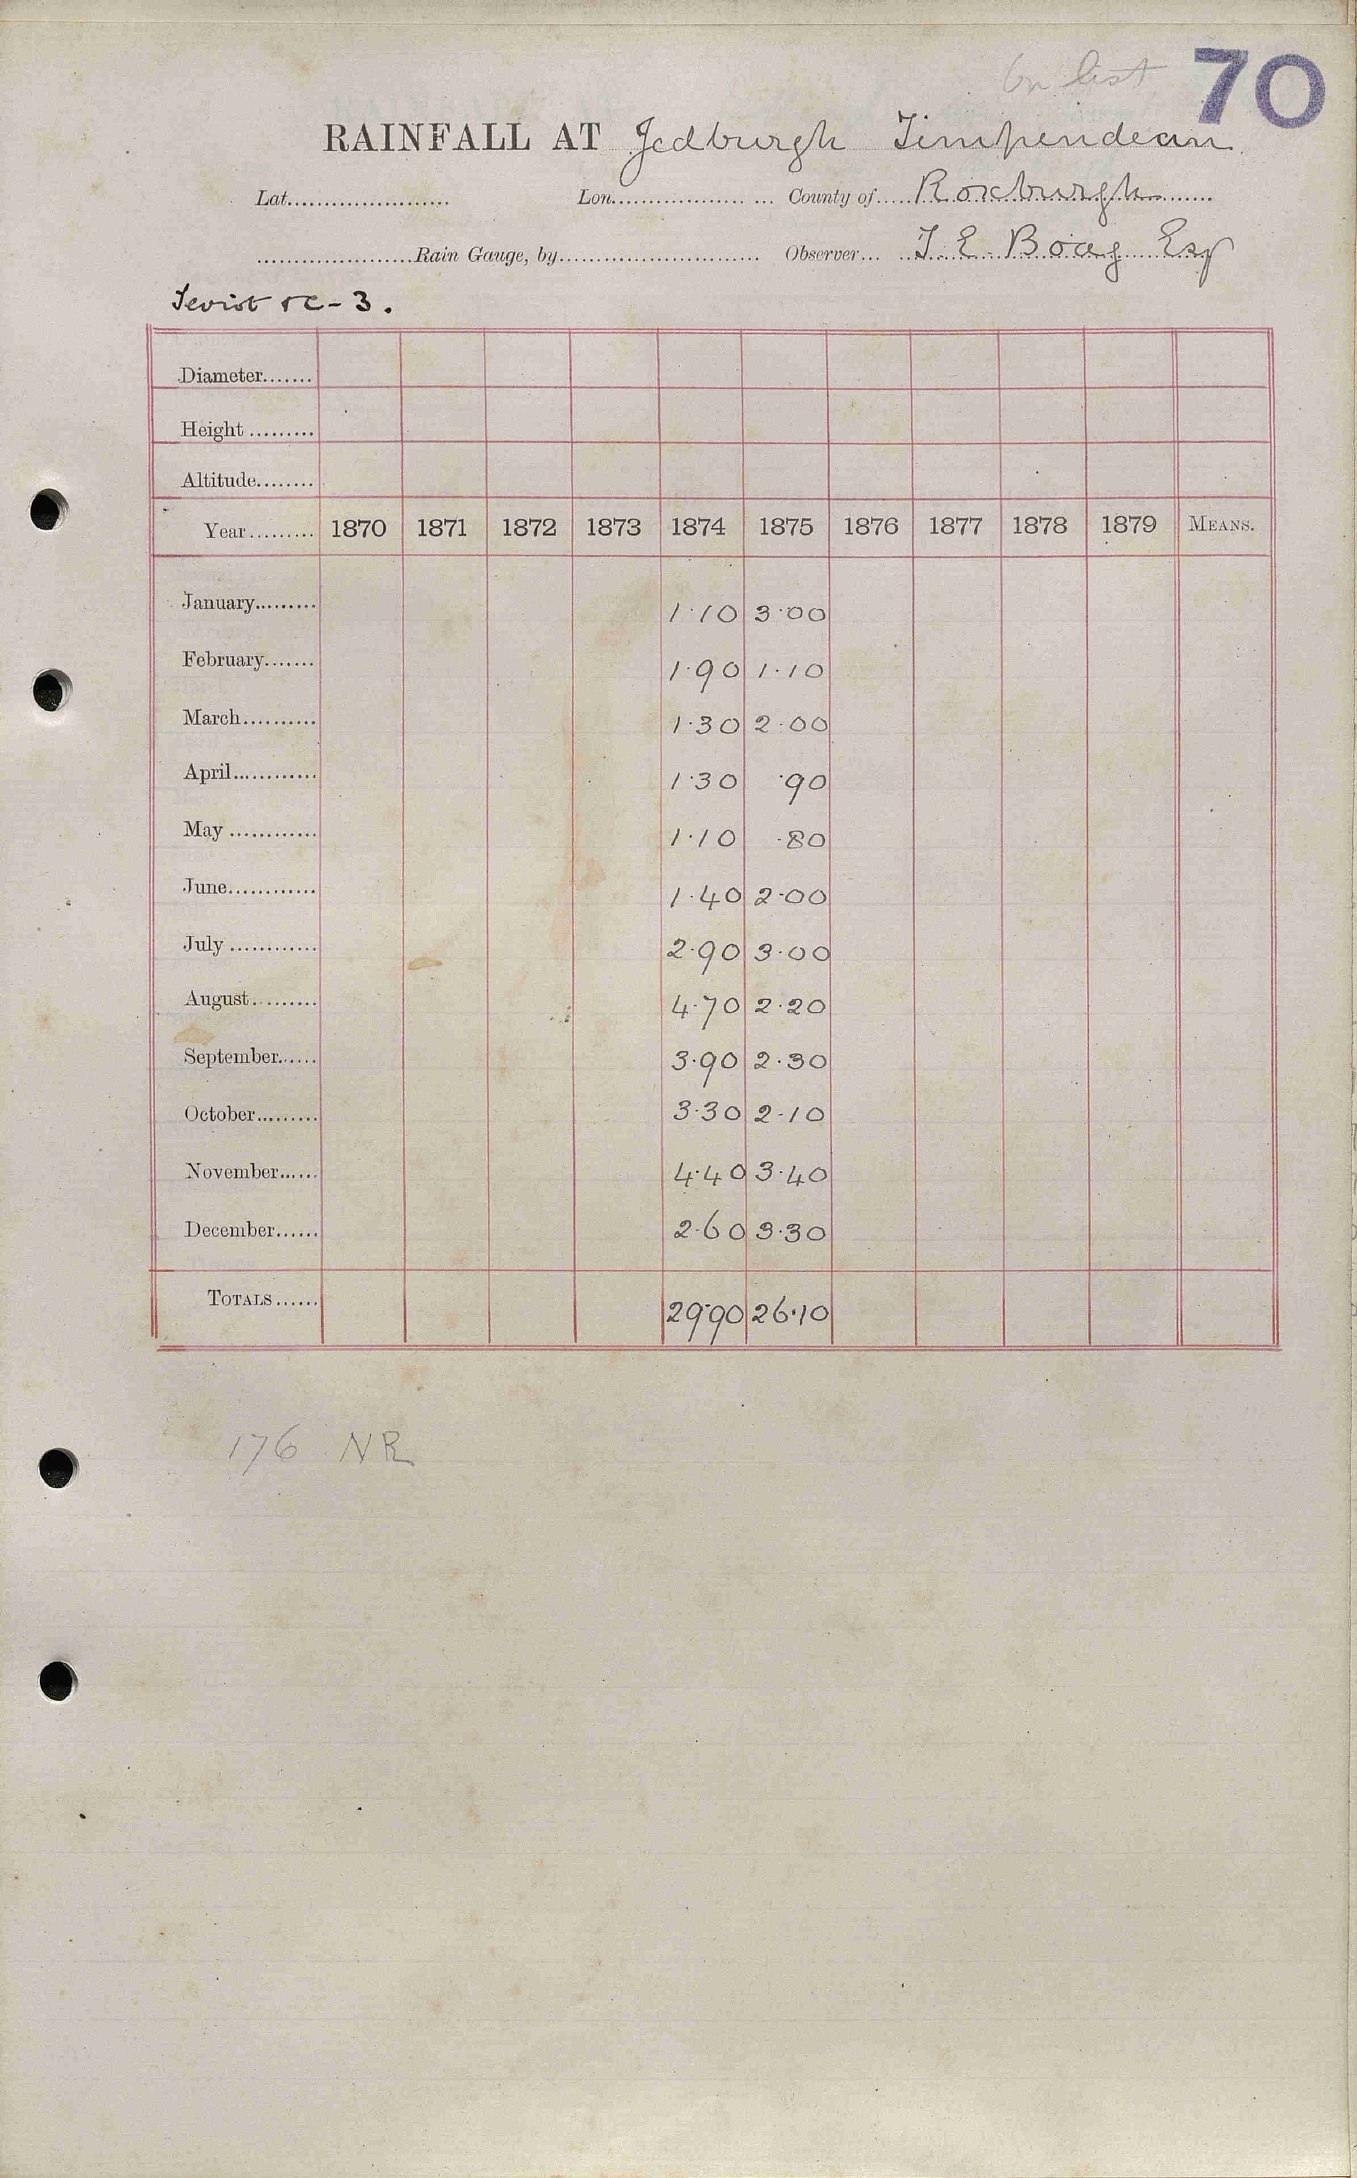 On list 70
RAINFALL AT Jedburgh Timpendean
Lat...................... Lon.................. ... County of..... Roxburgh
......................Rain Gauge, by........................... Observer... T. E. Boag Esq
Teviot &c - 3.
Diameter.......
Height .........
Altitude........
Year......... 1870 1871 1872 1873 1874 1875 1876 1877 1878 1879 MEANS.
January......... 1·10 3·00
February....... 1·90 1·10
March.......... 1·30 2·00
April............ 1·30 ·90
May ............ 1·10 ·80
June............ 1·40 2·00
July ............ 2·90 3·00
August......... 4·70 2·20
September...... 3·90 2·30
October......... 3·30 2·10
November...... 4·40 3·40
December...... 2·60 3·30
TOTALS...... 29·90 26·10
176 NR